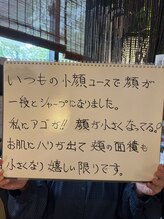 いつもの小顔コースで顔が
一段とシャープになりました。
私にアゴが!! 顔が小さくなってる。
お肌にハリが出て 頬の面積も
小さくなり嬉しい限りです。